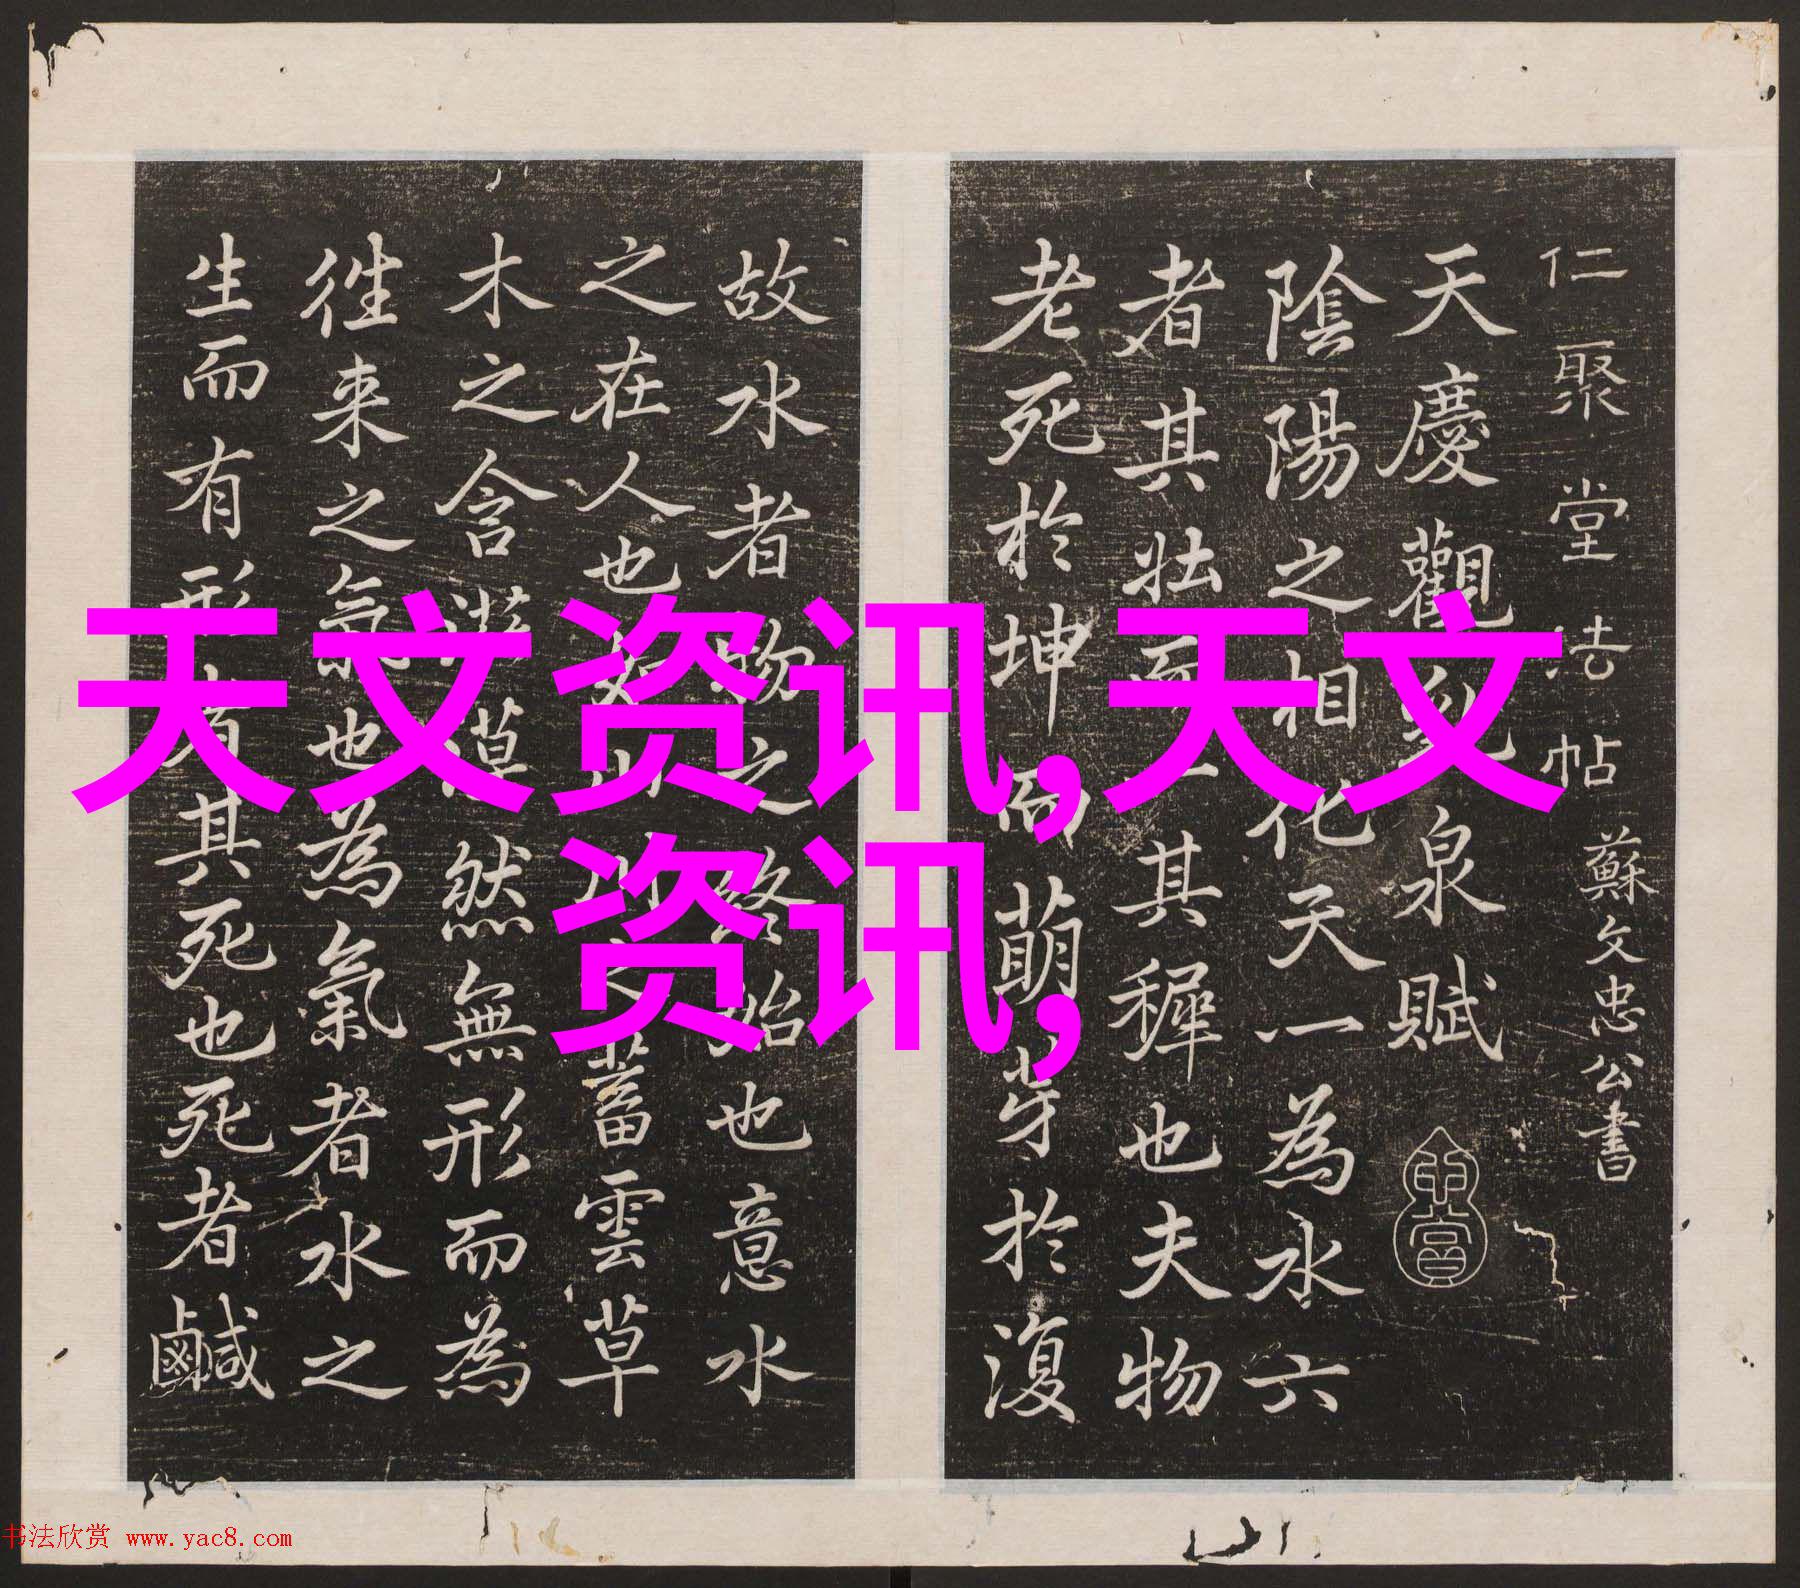 仁聚堂法帖 蘇文忠公書
天慶觀乳泉賦
陰陽之相化天一為水六
者其壯而一其穉也夫物
老死於坤而萌芽於復
故水者物之終始也意水
之在人也川之蓄雲草
木之含滋漠然無形而為
往来之氣也為氣者水之
生而有形者其死也死者鹹
天文资讯,天文
资讯,
书法欣赏 www.yac8.com